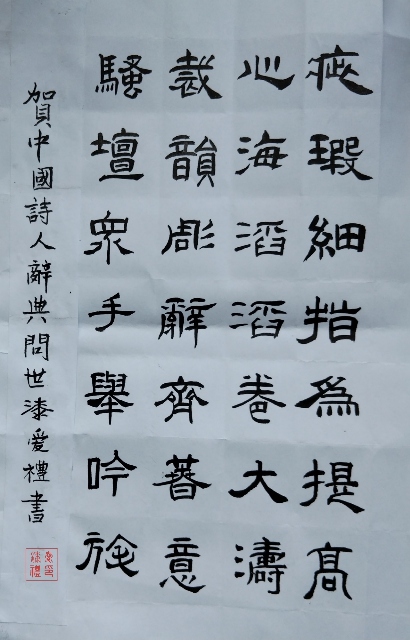 疵瑕細指為提高
心海滔滔卷大濤
裁韻彫辭齊著意
騷壇眾手舉吟旄
賀中國詩人辭典問世漆愛禮書